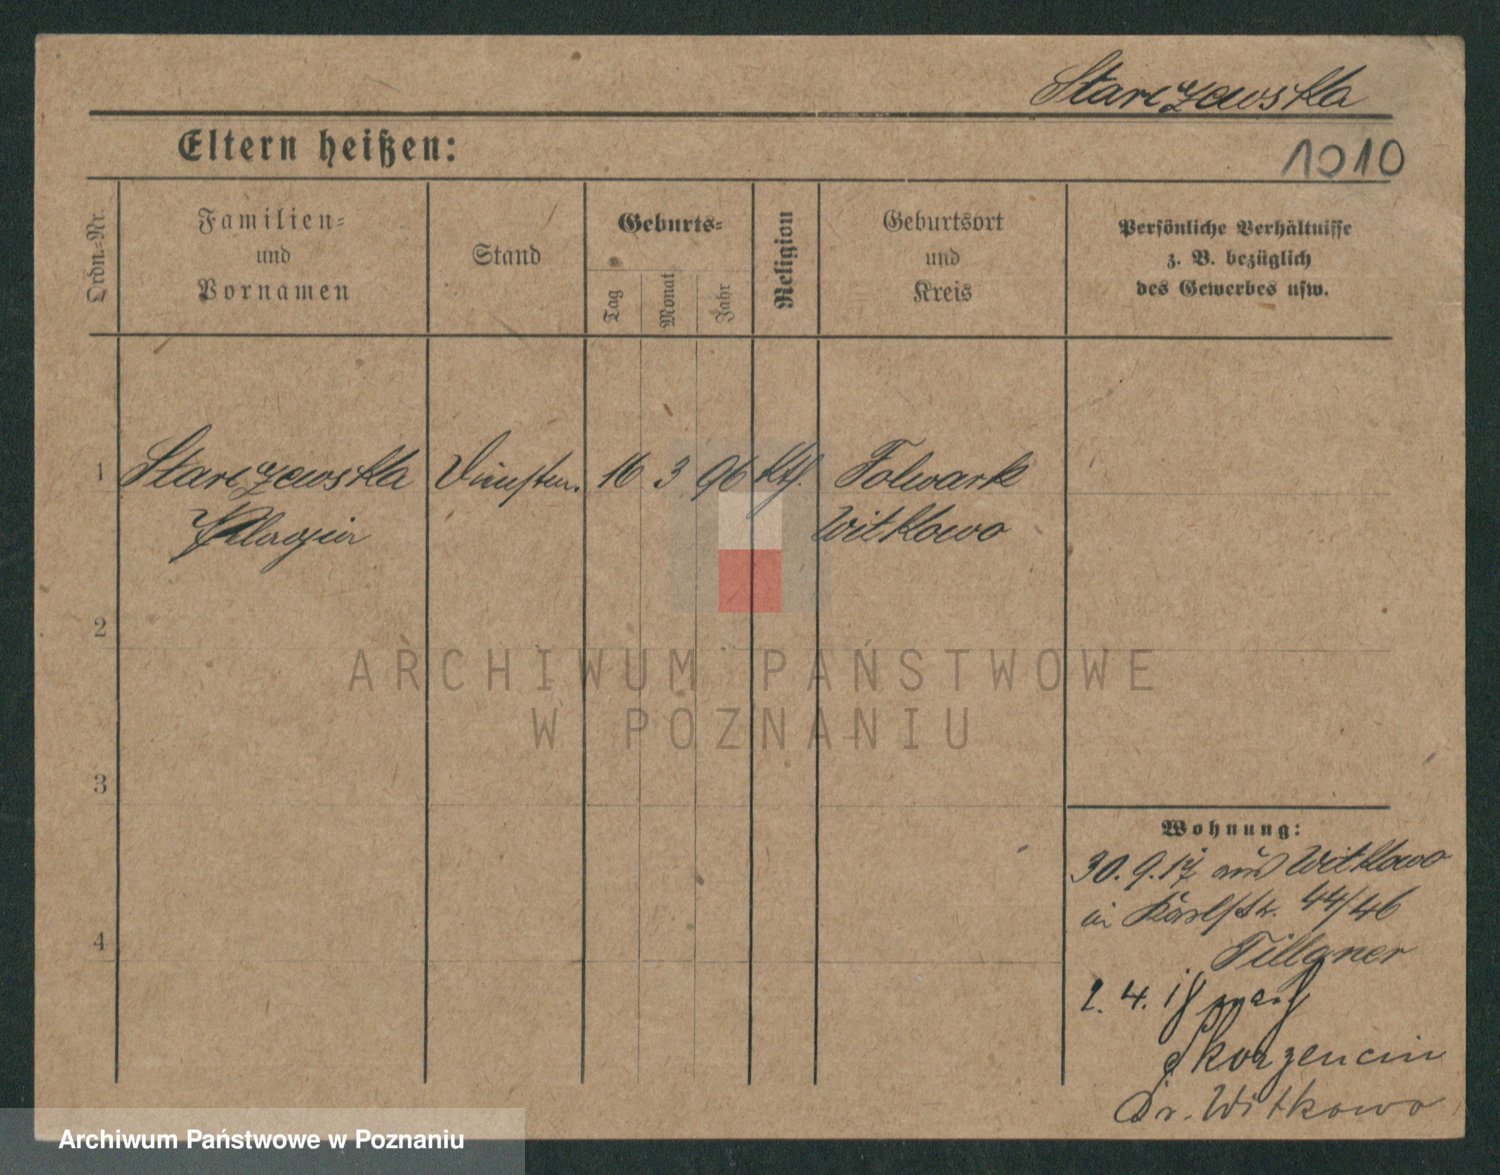 Starczewska
Eltern heißen:
1010
Ordn.-Nr.
Familien-
und
Vornamen
Stand
Geburts-
Tag
Monat
Jahr
Religion
Geburtsort
und
Kreis
Persönliche Verhältnisse
z. B. bezüglich
des Gewerbes usw.
1 Starczewska 16 3 96 kth. Folwark
Pelagia Witkowo
2
ARCHIWUM PAŃSTWOWE
W POZNANIU
3
Wohnung:
30. 9. 17 aus Witkowo
in Karlstr. 44/46
4
Tillgner
2. 4. 18 nach
Skorzencin
Kr. Witkowo
Archiwum Państwowe w Poznaniu